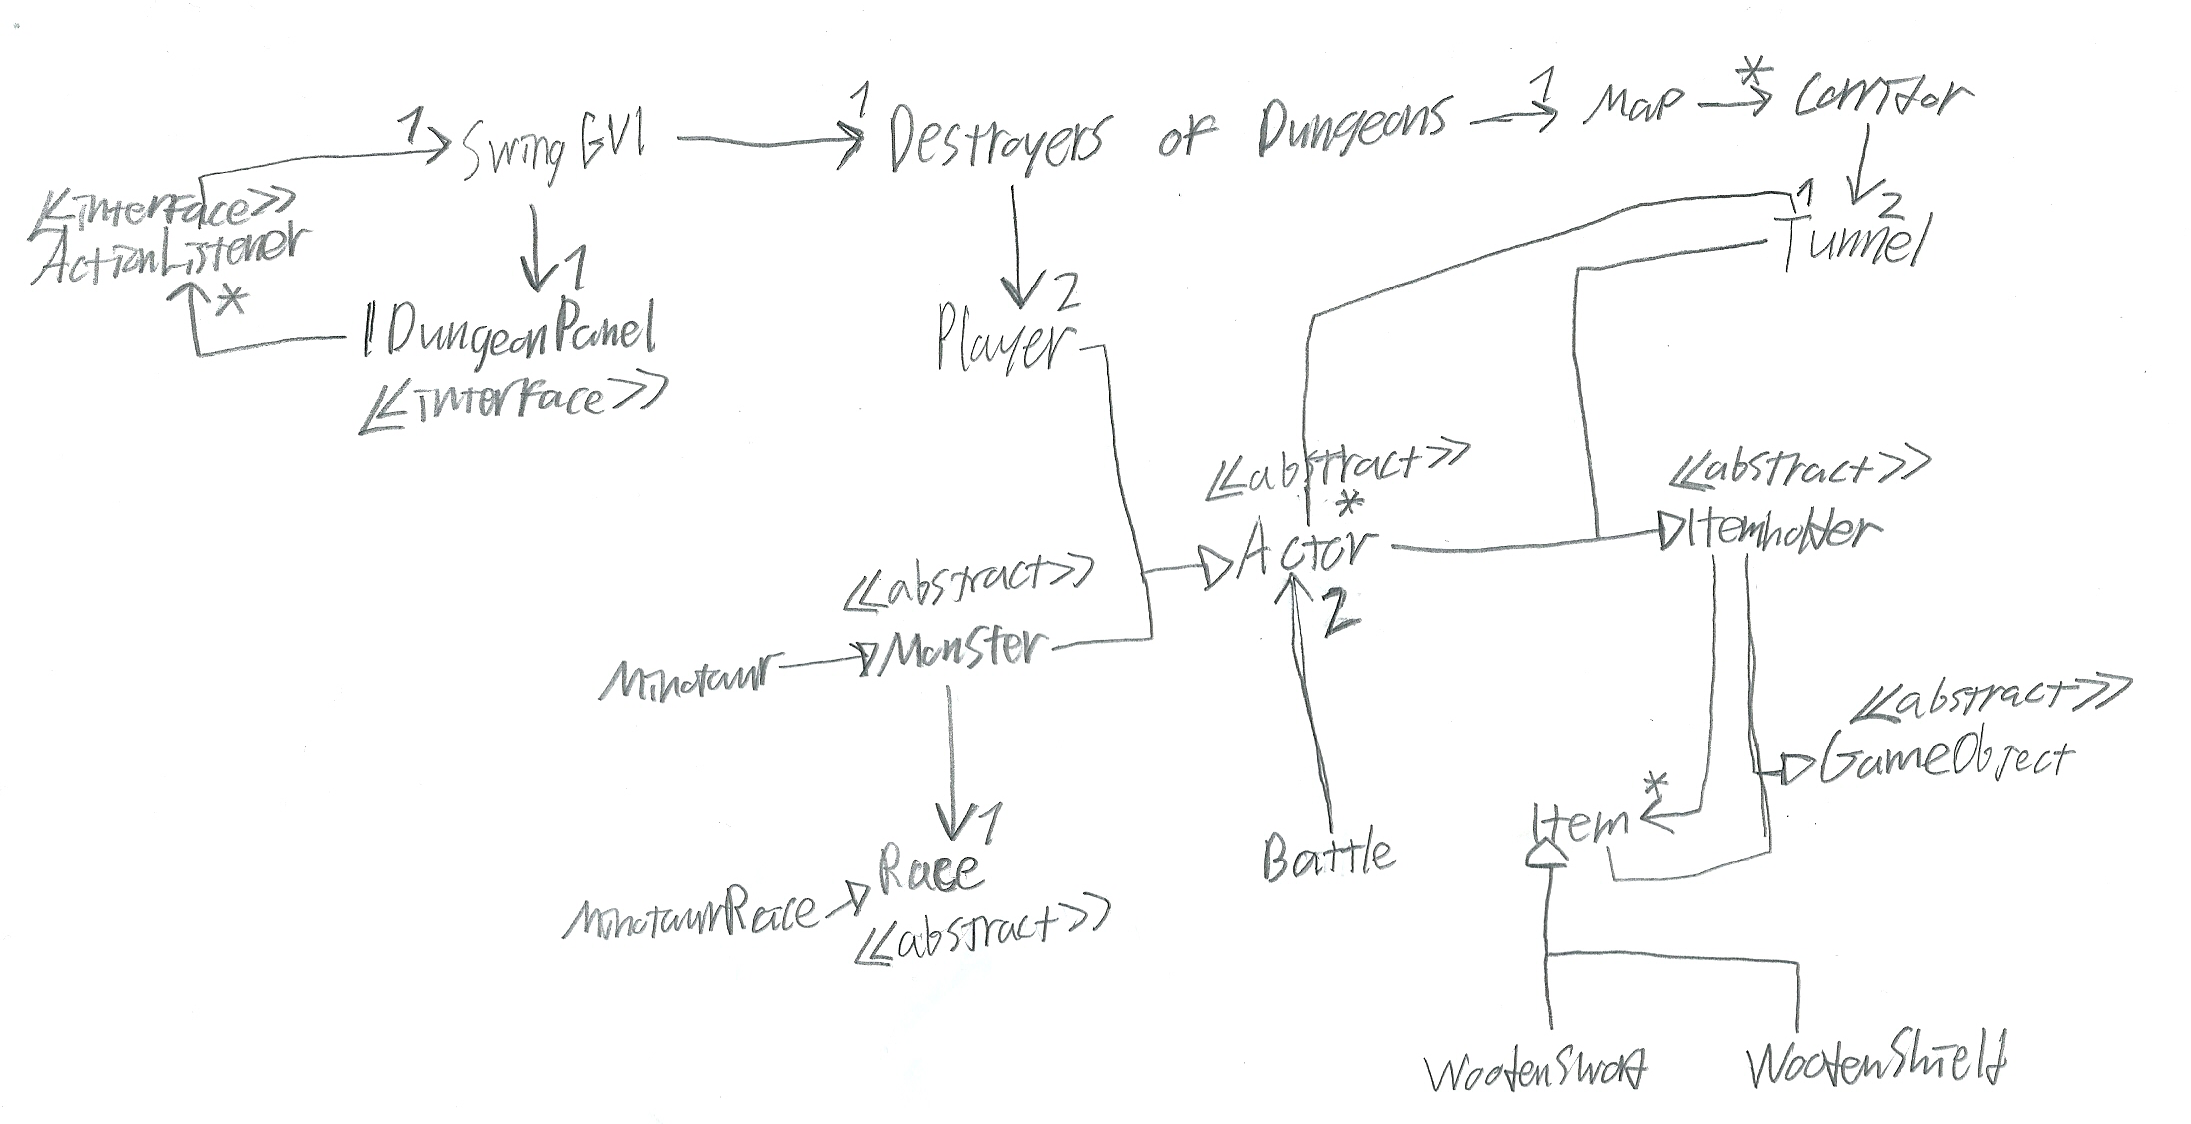 1 SwingGUI 1 Destroyers of Dungeons 1 Map * Corridor
<<interface>>
ActionListener
*
1
IDungeonPanel
<<interface>>
2
Player
1 2
Tunnel
<<abstract>>
*
Actor
2
<<abstract>>
Itemholder
<<abstract>>
Minotaur Monster
1
Race
MinotaurRace
<<abstract>>
Battle
<<abstract>>
GameObject
*
Item
WoodenSword WoodenShield